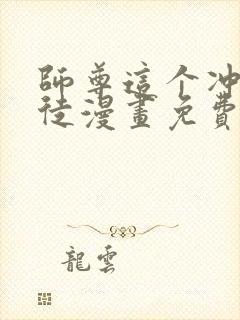 師尊這个冲
徒漫畫免費
龍雲